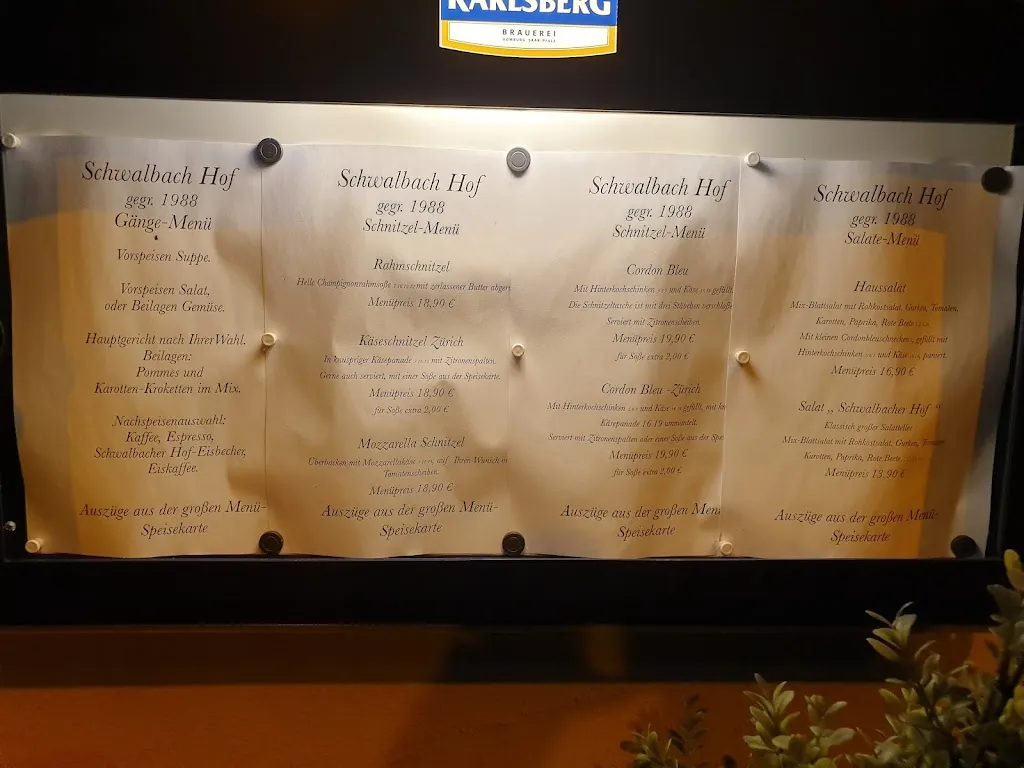 KARLSBERG
BRAUEREI
Schwalbach Hof
gegr. 1988
Gänge-Menü
Vorspeisen Suppe.
Vorspeisen Salat,
oder Beilagen Gemüse.
Hauptgericht nach Ihrer Wahl.
Beilagen:
Pommes und
Karotten-Kroketten im Mix.
Nachspeisenauswahl:
Kaffee, Espresso,
Schwalbacher Hof-Eisbecher,
Eiskaffee.
Auszüge aus der großen Menü-
Speisekarte
Schwalbach Hof
gegr. 1988
Schnitzel-Menü
Rahmschnitzel
Helle Champignonrahmsoße mit zerlassener Butter
Menüpreis 18,90 €
Käseschnitzel Zürich
In knuspriger Käsepanade mit Zitronenspalten.
Gerne auch serviert, mit einer Soße aus der Speisekarte.
Menüpreis 18,90 €
für Soße extra 2,00 €
Mozzarella Schnitzel
Überbacken mit Mozzarellakäse auf Ihren Wunsch
Tomatenscheiben.
Menüpreis 18,90 €
Auszüge aus der großen Menü-
Speisekarte
Schwalbach Hof
gegr. 1988
Schnitzel-Menü
Cordon Bleu
Mit Hinterkochschinken und Käse gefüllt
Die Schnitzeltasche ist mit drei Stäbchen
Serviert mit Zitronenscheiben.
Menüpreis 19,90 €
für Soße extra 2,00 €
Cordon Bleu -Zürich
Mit Hinterkochschinken und Käse gefüllt, mit
Käsepanade 16 19 ummantelt.
Serviert mit Zitronenspalten oder einer Soße aus der
Menüpreis 19,90 €
für Soße extra 2,00 €
Auszüge aus der großen Menü
Speisekarte
Schwalbach Hof
gegr. 1988
Salate-Menü
Haussalat
Mix-Blattsalat mit Rohkostsalat, Gurken, Tomaten,
Karotten, Paprika, Rote Beete
Mit kleinen Cordonbleuschnecken, gefüllt mit
Hinterkochschinken und Käse paniert.
Menüpreis 16,90 €
Salat „ Schwalbacher Hof "
Klassisch großer Salatteller
Mix-Blattsalat mit Rohkostsalat, Gurken, Tomaten
Karotten, Paprika, Rote Beete.
Menüpreis 13,90 €
Auszüge aus der großen Menü-
Speisekarte